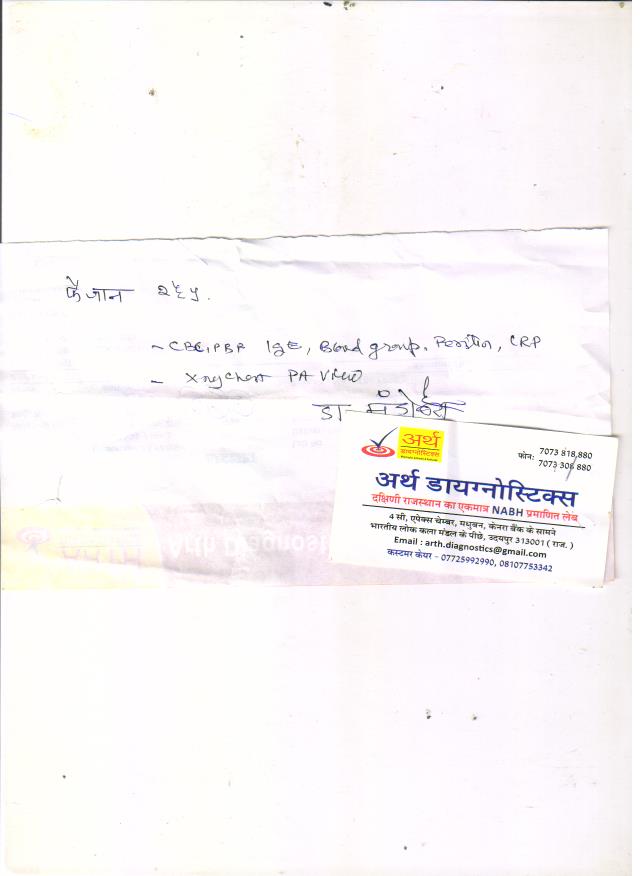 फैजान
- CBC, PBF IgE, Blood group. Ferritin, CRP
- Xray Chest PA View
डा
अर्थ
डायग्नोस्टिक्स
फोन: 7073 818,880
7073 308 880
अर्थ डायग्नोस्टिक्स
दक्षिणी राजस्थान का एकमात्र NABH प्रमाणित लेब
4 सी, एपेक्स चेम्बर, मधुबन, केनरा बैंक के सामने
भारतीय लोक कला मंडल के पीछे, उदयपुर 313001 ( राज. )
Email : arth.diagnostics@gmail.com
कस्टमर केयर - 07725992990, 08107753342